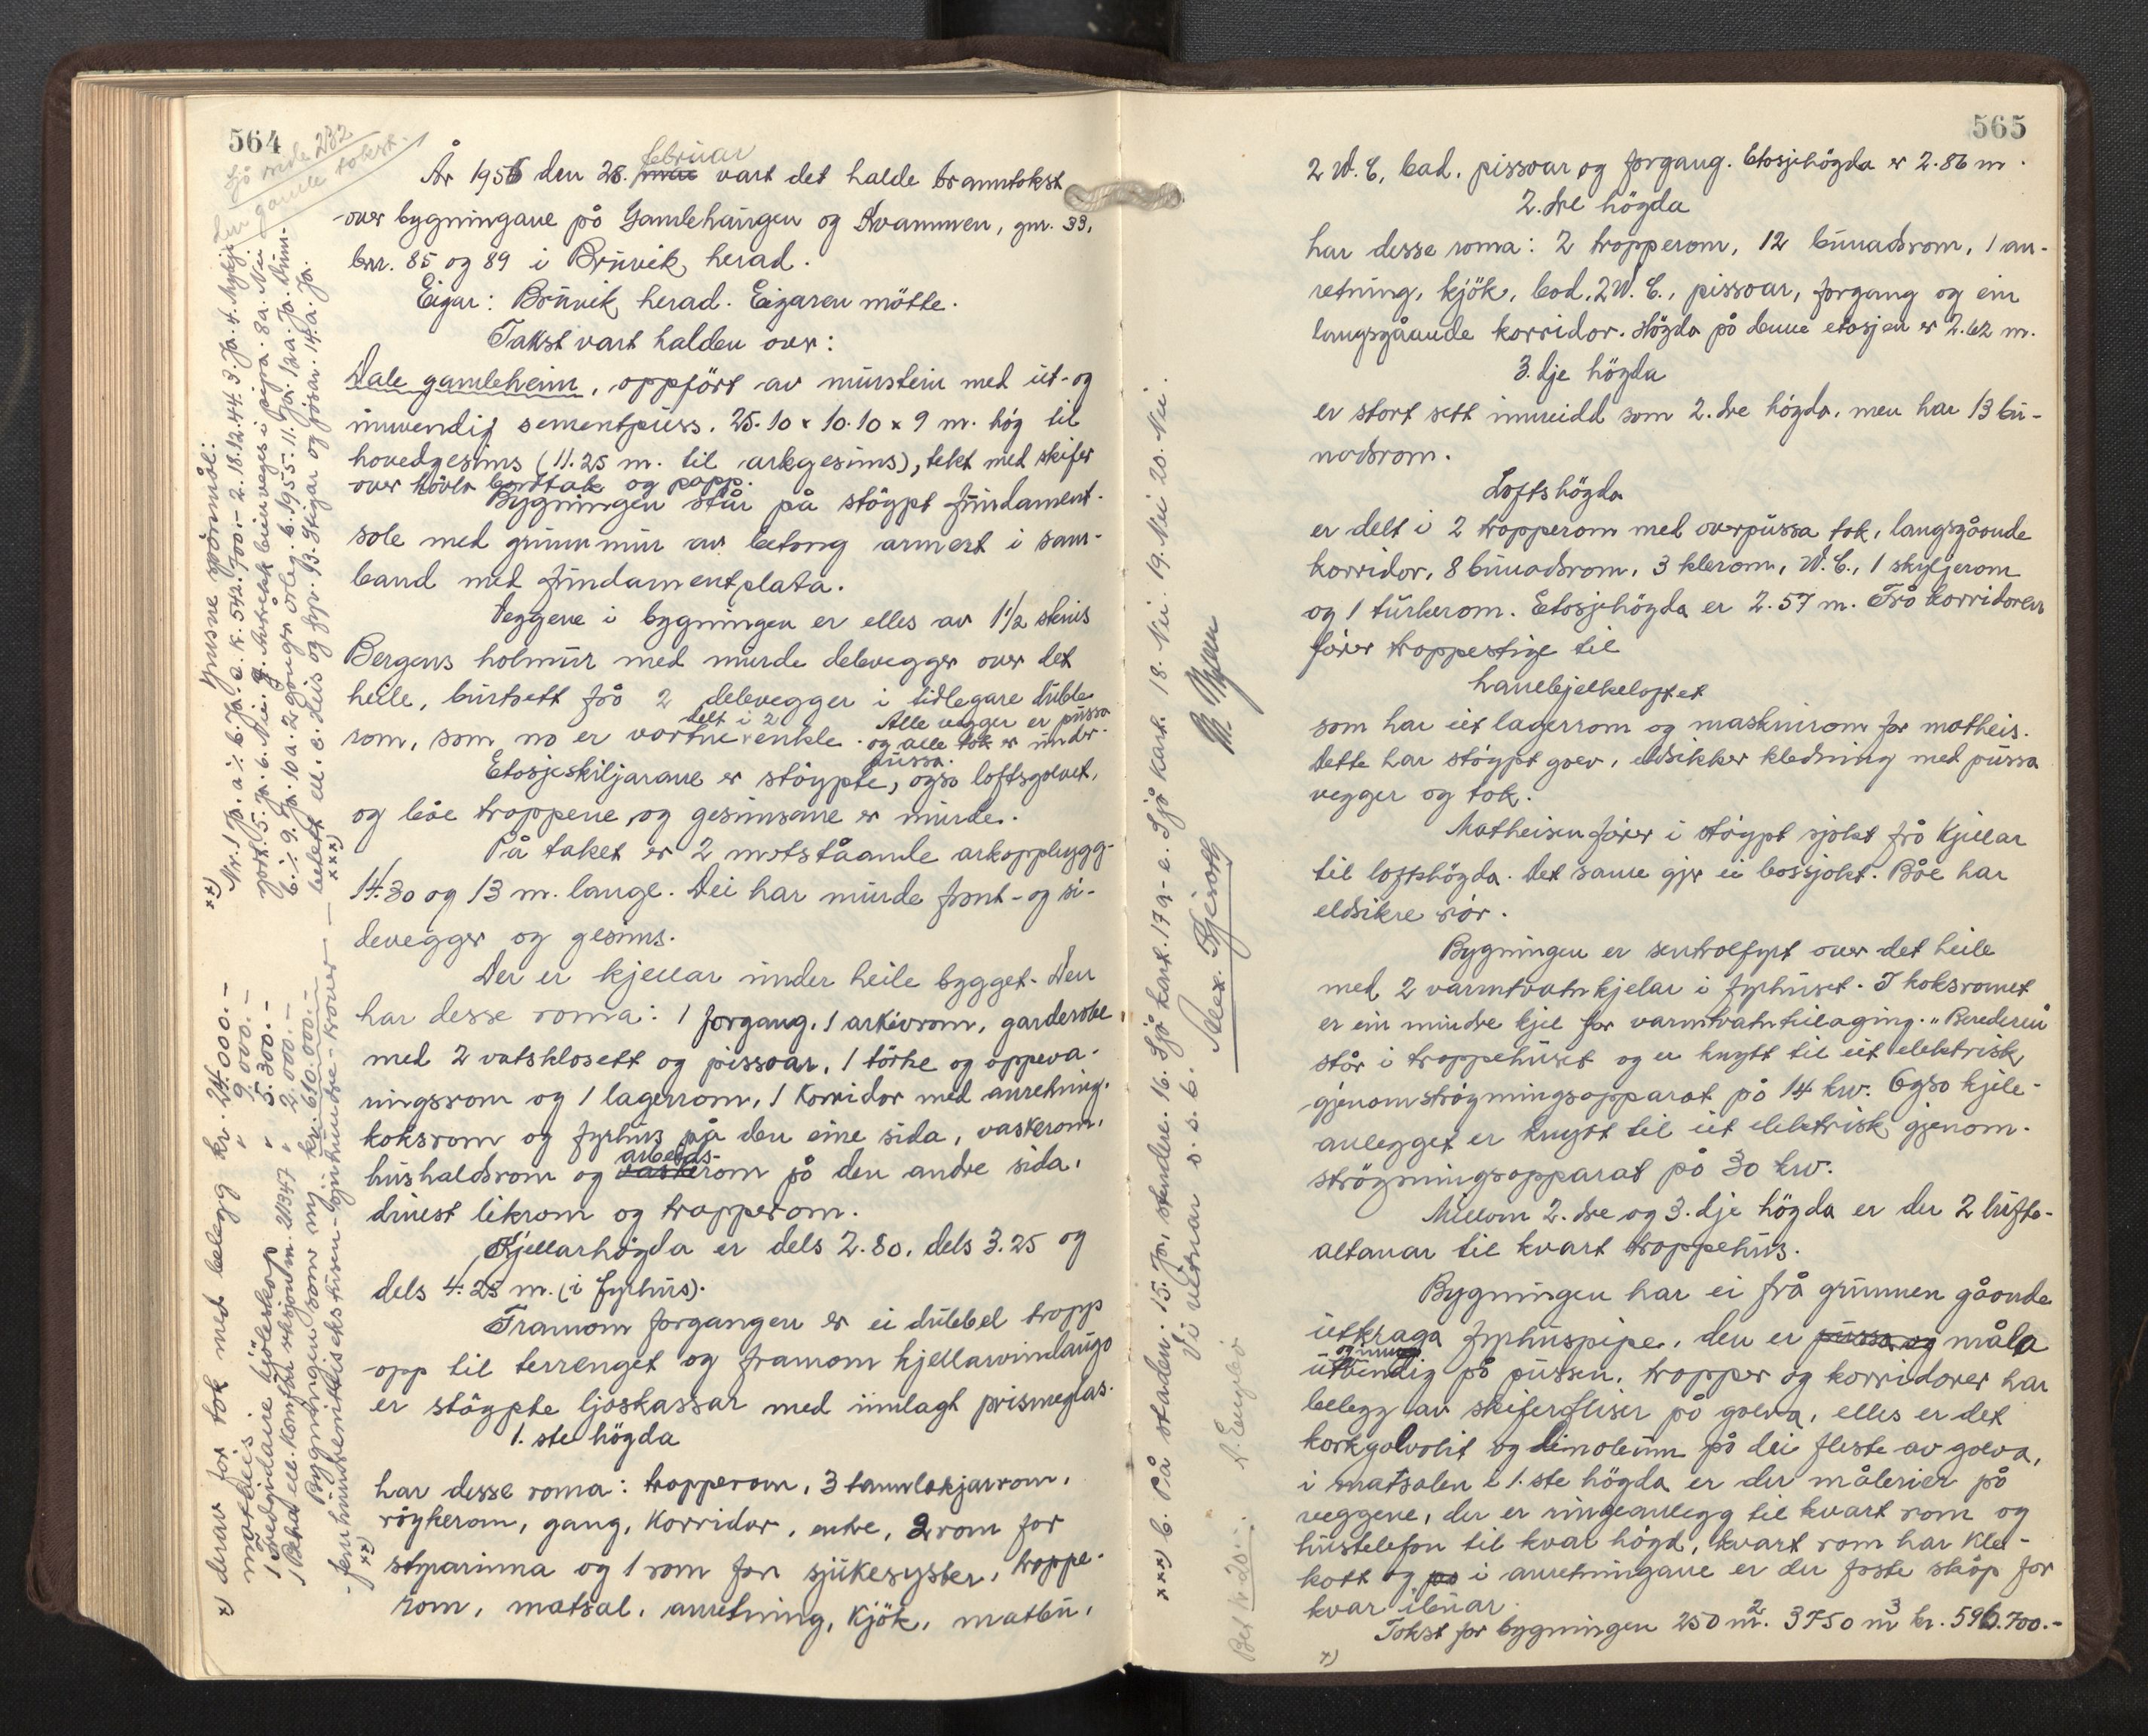 564
Sjå side 232
for gamle takst.
År 1956 den 28. februar vart det halde branntakst
over bygningane på Gamlehaugen og Kvammen, gnr. 33,
bnr. 85 og 89 i Bruvik herad.
Eigar: Bruvik herad. Eigaren møtte.
Takst vart halden over:
Dale gamleheim, oppført av murstein med ut- og
innvendig sementpuss. 25.10 x 10.10 x 9 m. høg til
hovedgesims (11.25 m. til arkgesims), tekt med skifer
over høvla bordtak og papp.
Bygningen står på støypt fundament-
såle med grunnmur av betong armert i sam-
band med fundamentplata.
Veggene i bygningen er elles av 1 1/2 steins
Bergens holmur med murde delevegger over det
heile, burtsett frå 2 delevegger i tidlegare duble
rom, som no er vortne delt i 2 enkle. Alle vegger er pussa
og alle tak er under-
pussa.
Etasjeskiljarane er støypte, også loftsgolvet,
og båe troppene og gesimsane er murde.
På taket er 2 motståande arkoppbygg-
14.30 og 13 m. lange. Dei har murde front- og si-
devegger og gesims.
Der er kjellar under heile bygget. Den
har desse roma: 1 forgang, 1 arkivrom, garderobe,
med 2 vatsklosett og pissoar, 1 tørke og oppeva-
ringsrom og 1 lagerrom, 1 korridor med anretning.
koksrom og fyrhus på den eine sida, vaskerom,
hushaldsrom og arbeids-
vaskerom på den andre sida,
dinest likrom og tropperom.
Kjellarhøgda er dels 2.80, dels 3.25 og
dels 4.25 m. (i fyrhus).
Framom forgangen er ei dubbel tropp
opp til terrenget og framom kjellarvindaugo
er støypte ljoskassar med innlagt prismeglas.
1. ste høgda
har desse roma: tropperom, 3 tannlækjarrom,
røykerom, gang, korridor, entre, 2 rom for
styrarinna og 1 rom for sjukesyster, troppe-
rom, matsal, anretning, kjøk, matbu,
x) derav for tak med belegg kr. 24.000.-
matheis " 9.000.-
1 Fredgidaire kjøleskap " 5.300.-
1 ell. Komfur nr. 21347 " 2.000.-
Bygningen som ny kr. 610.000.-
xx)
Ymsne spörmål:
xxx)
565
2 W.C, bad, pissoar og forgang. Etasjehøgda er 2.86 m.
2. dre høgda
har desse roma: 2 tropperom, 12 bunadsrom, 1 an-
retning, kjøk, bod, 2 W.C., pissoar, forgang og ein
langsgåande korridor. Høgda på denne etasjen er 2.62 m.
3. dje høgda
er stort sett innreidd som 2. dre høgda, men har 13 bu-
nadsrom.
Loftshøgda
er delt i 2 tropperom med overpussa tak, langsgåande
korridor, 8 bunadsrom, 3 klerom, W.C., 1 skyljerom
og 1 turkerom. Etasjehøgda er 2.57 m. Frå korridoren
fører troppestige til
hanebjelkeloftet
som har eit lagerrom og maskinrom for matheis.
Dette har støypt golv, eldsikker kledning med pussa
vegger og tak.
Matheisen fører i støypt sjakt frå kjellar
til loftshøgda. Det same gjer ei bossjakt. Båe har
eldsikre dør.
Bygningen er sentralfyrt over det heile
med 2 varmtvatnkjelar i fyrhuset. I koksromet
er ein mindre kjel for varmtvatntillaging. "Berederen"
står i troppehuset og er knytt til eit elektrisk
gjenomstrøymingsapparat på 14 kw. Også kjele-
anlegget er knytt til eit elektrisk gjenom-
strøymingsapparat på 30 kw.
Millom 2. dre og 3. dje høgda er der 2 lufte-
altanar til kvart troppehus.
Bygningen har ei frå grunnen gåande
utkraga fyrhuspipe, den er pussa og måla
og innv
utvendig på pussen, tropper og korridorer har
belegg av skiferfliser på golva, elles er det
korkgolvolit og linoleum på dei fleste av golva,
i matsalen i 1. ste høgda er der målerier på
veggene, der er ringeanlegg til kvart rom og
hustelefon til kvar høgd, kvart rom har kle-
kott og på i anretningane er der faste skåp for
kvar ibuar.
Takst for bygningen 250 m². 3750 m³ kr. 596.700.-
x)
xxx) b. På staden. 15. Ja, stundre. 16. Sjå kart. 17 a-e. Sjå kart. 18. Nei. 19. Nei 20. Nei.
Vi vetnar o.s.b.